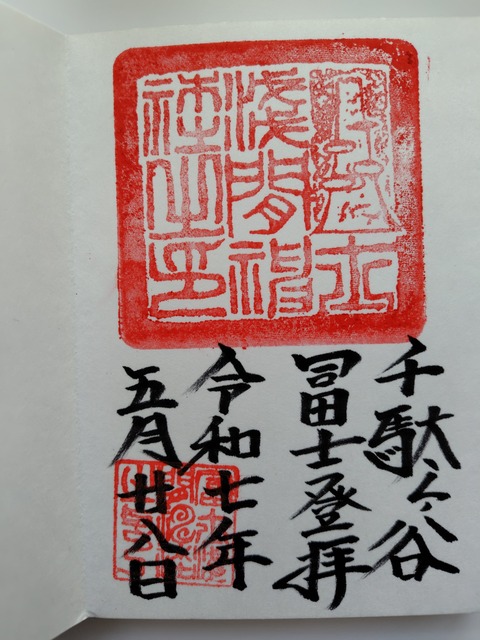 富士
淺間神
社之印
千駄ヶ谷
冨士登拝
令和七年
五月廿八日